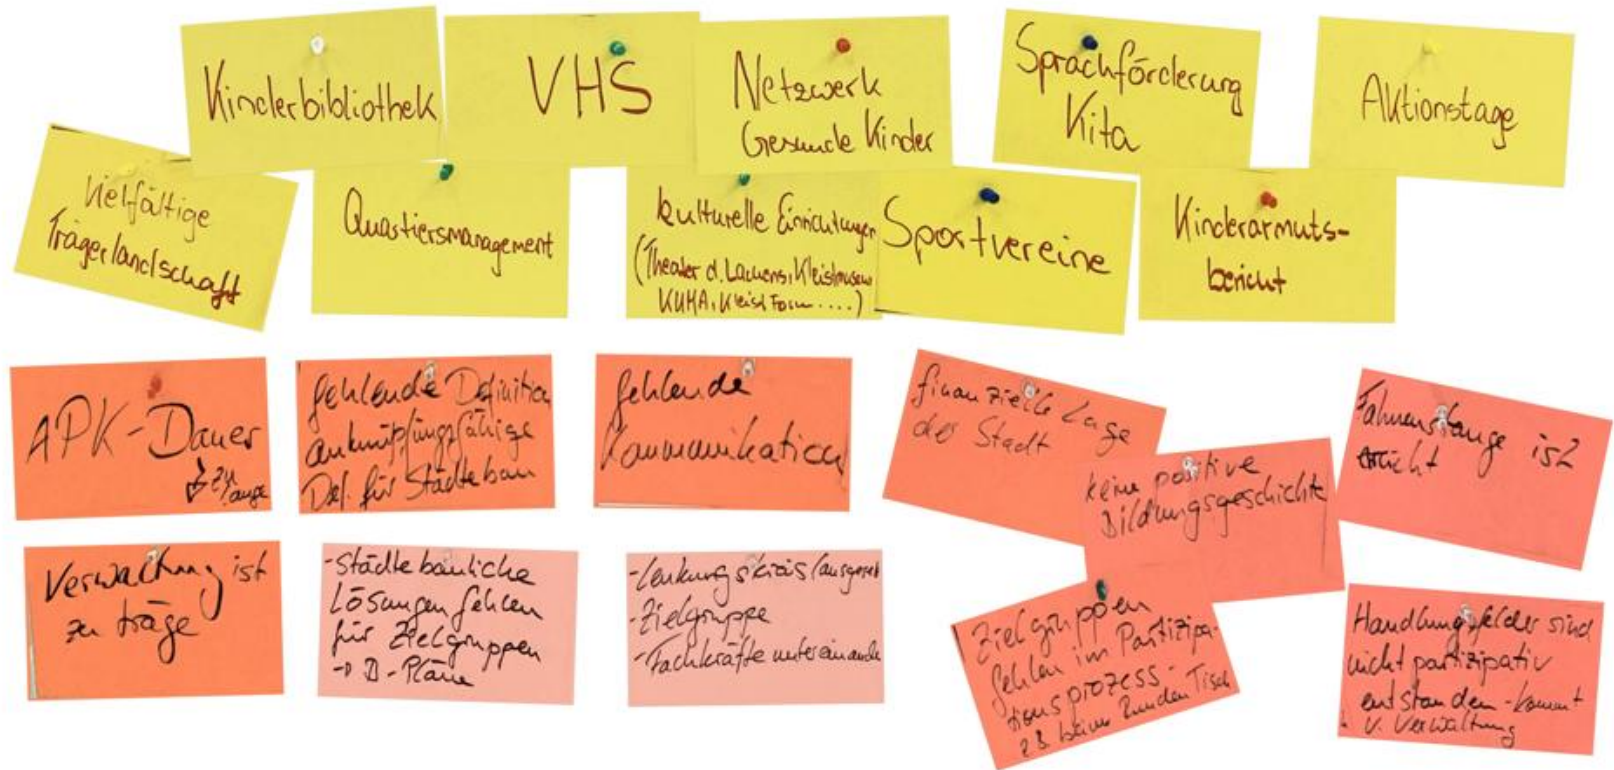 Kinderbibliothek
VHS
Netzwerk
Gesunde Kinder
Sprachförderung
Kita
Aktionstage
Vielfältige
Trägerlandschaft
Quartiersmanagement
kulturelle Einrichtungen
(Theater d. Lachens, Kleistmuseum
KUMA, Kleist Forum....)
Sportvereine
Kinderarmuts-
bericht
APK-Dauer
↳ zu
lange
fehlende Definition
anknüpfungsfähige
Def. für Städtebau
fehlende
Kommunikation
finanzielle Lage
der Stadt
keine positive
Bildungsgeschichte
Fahnenstange ist
erreicht
Verwaltung ist
zu träge
- Städtebauliche
Lösungen fehlen
für Zielgruppen
→ B-Pläne
- Lenkungskreis (ausgeset
- Zielgruppe
- Fachkräfte untereinande
Zielgruppen
fehlen im Partizipa-
tionsprozess -
z.B. beim Runden Tisch
Handlungsfelder sind
nicht partizipativ
entstanden - kommt
v. Verwaltung